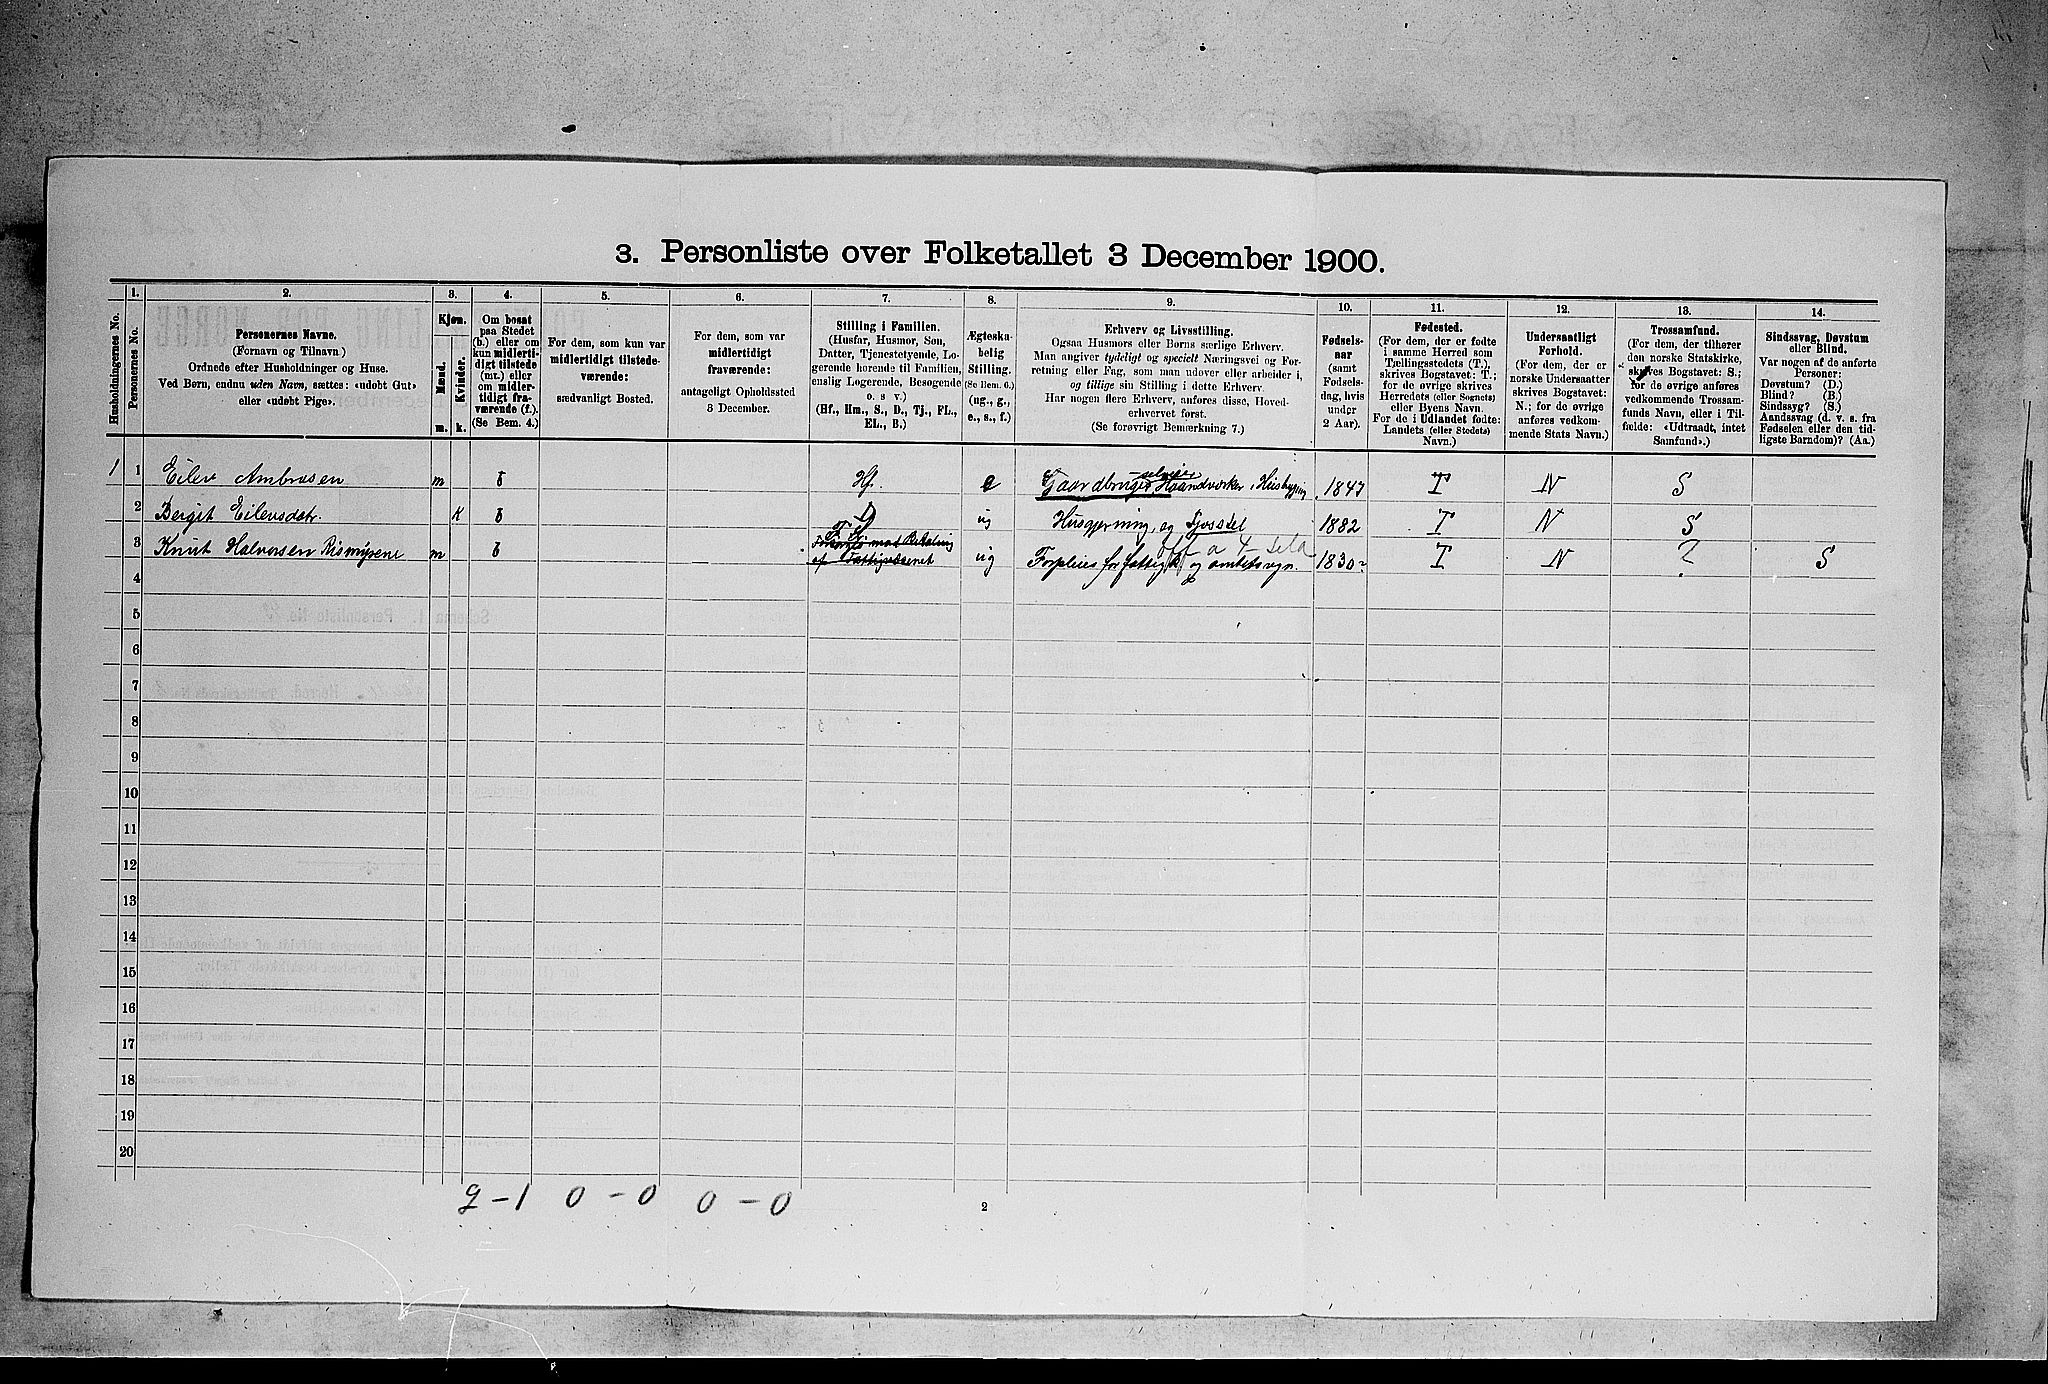 3. Personliste over Folketallet 3 December 1900.
Husholdningernes No.
1.
Personernes No.
2.
Personernes Navne.
(Fornavn og Tilnavn)
Ordnede efter Husholdninger og Huse.
Ved Børn, endnu uden Navn, sættes: «udøbt Gut»
eller «udøbt Pige».
3.
Kjøn.
Mænd.
Kvinder.
m.
k.
4.
Om bosat
paa Stedet
(b.) eller om
kun midlerti-
digt tilstede
(mt.) eller
om midler-
tidigt fra-
værende (f.).
(Se Bem. 4.)
5.
For dem, som kun var
midlertidigt tilstede-
værende:
sædvanligt Bosted.
6.
For dem, som var
midlertidigt
fraværende:
antageligt Opholdssted
3 December.
7.
Stilling i Familien.
(Husfar, Husmor, Søn,
Datter, Tjenestetyende, Lo-
gerende hørende til Familien,
enslig Logerende, Besøgende
o. s v.)
(Hf., Hm., S., D., Tj., FL.,
EL., B.)
8.
Ægteska-
belig
Stilling.
(Se Bem. 6.)
(ug., g.,
e., s., f.)
9.
Erhverv og Livsstilling.
Ogsaa Husmors eller Børns særlige Erhverv.
Man angiver tydeligt og specielt Næringsvei og For-
retning eller Fag, som man udøver eller arbeider i,
og tillige sin Stilling i dette Erhverv.
Har nogen flere Erhverv, anføres disse, Hoved-
erhvervet først.
(Se forøvrigt Bemærkning 7.)
10.
Fødsels-
aar
(samt
Fødsels-
dag, hvis
under
2 Aar).
11.
Fødested.
(For dem, der er fødte
i samme Herred som
Tællingsstedets (T.),
skrives Bogstavet: T.;
for de øvrige skrives
Herredets (eller Sognets)
eller Byens Navn.
For de i Udlandet fødte:
Landets (eller Stedets)
Navn.)
12.
Undersaatligt
Forhold.
(For dem, der er
norske Undersaatter
skrives Bogstavet:
N.; for de øvrige
anføres vedkom-
mende Stats Navn.)
13.
Trossamfund.
(For dem, der tilhører
den norske Statskirke,
skrives Bogstavet: S.;
for de øvrige anføres
vedkommende Trossam-
funds Navn, eller i Til-
fælde: «Udtraadt, intet
Samfund».)
14.
Sindssvag, Døvstum
eller Blind.
Var nogen af de anførte
Personer:
Døvstum? (D.)
Blind? (B.)
Sindssyg? (S.)
Aandssvag (d. v. s. fra
Fødselen eller den tid-
ligste Barndom)? (Aa.)
1 1 Eilev Ambrosen m b Hf. e Gaardbruger, selveier Haandværker i Husbygning 1847 T N S
2 Bergit Eilevsdatr. k b D ug Husgjerning, og Fjosstel 1882 T N S
3 Knut Halvorsen Rismyrene m b FL med Betaling af Fattigvæsenet ug Forpleies for fattigk og amtets regn. 1830? T N ? S
4
5
6
7
8
9
10
11
12
13
14
15
16
17
18
19
20
2 – 1 0 – 0 0 – 0
2